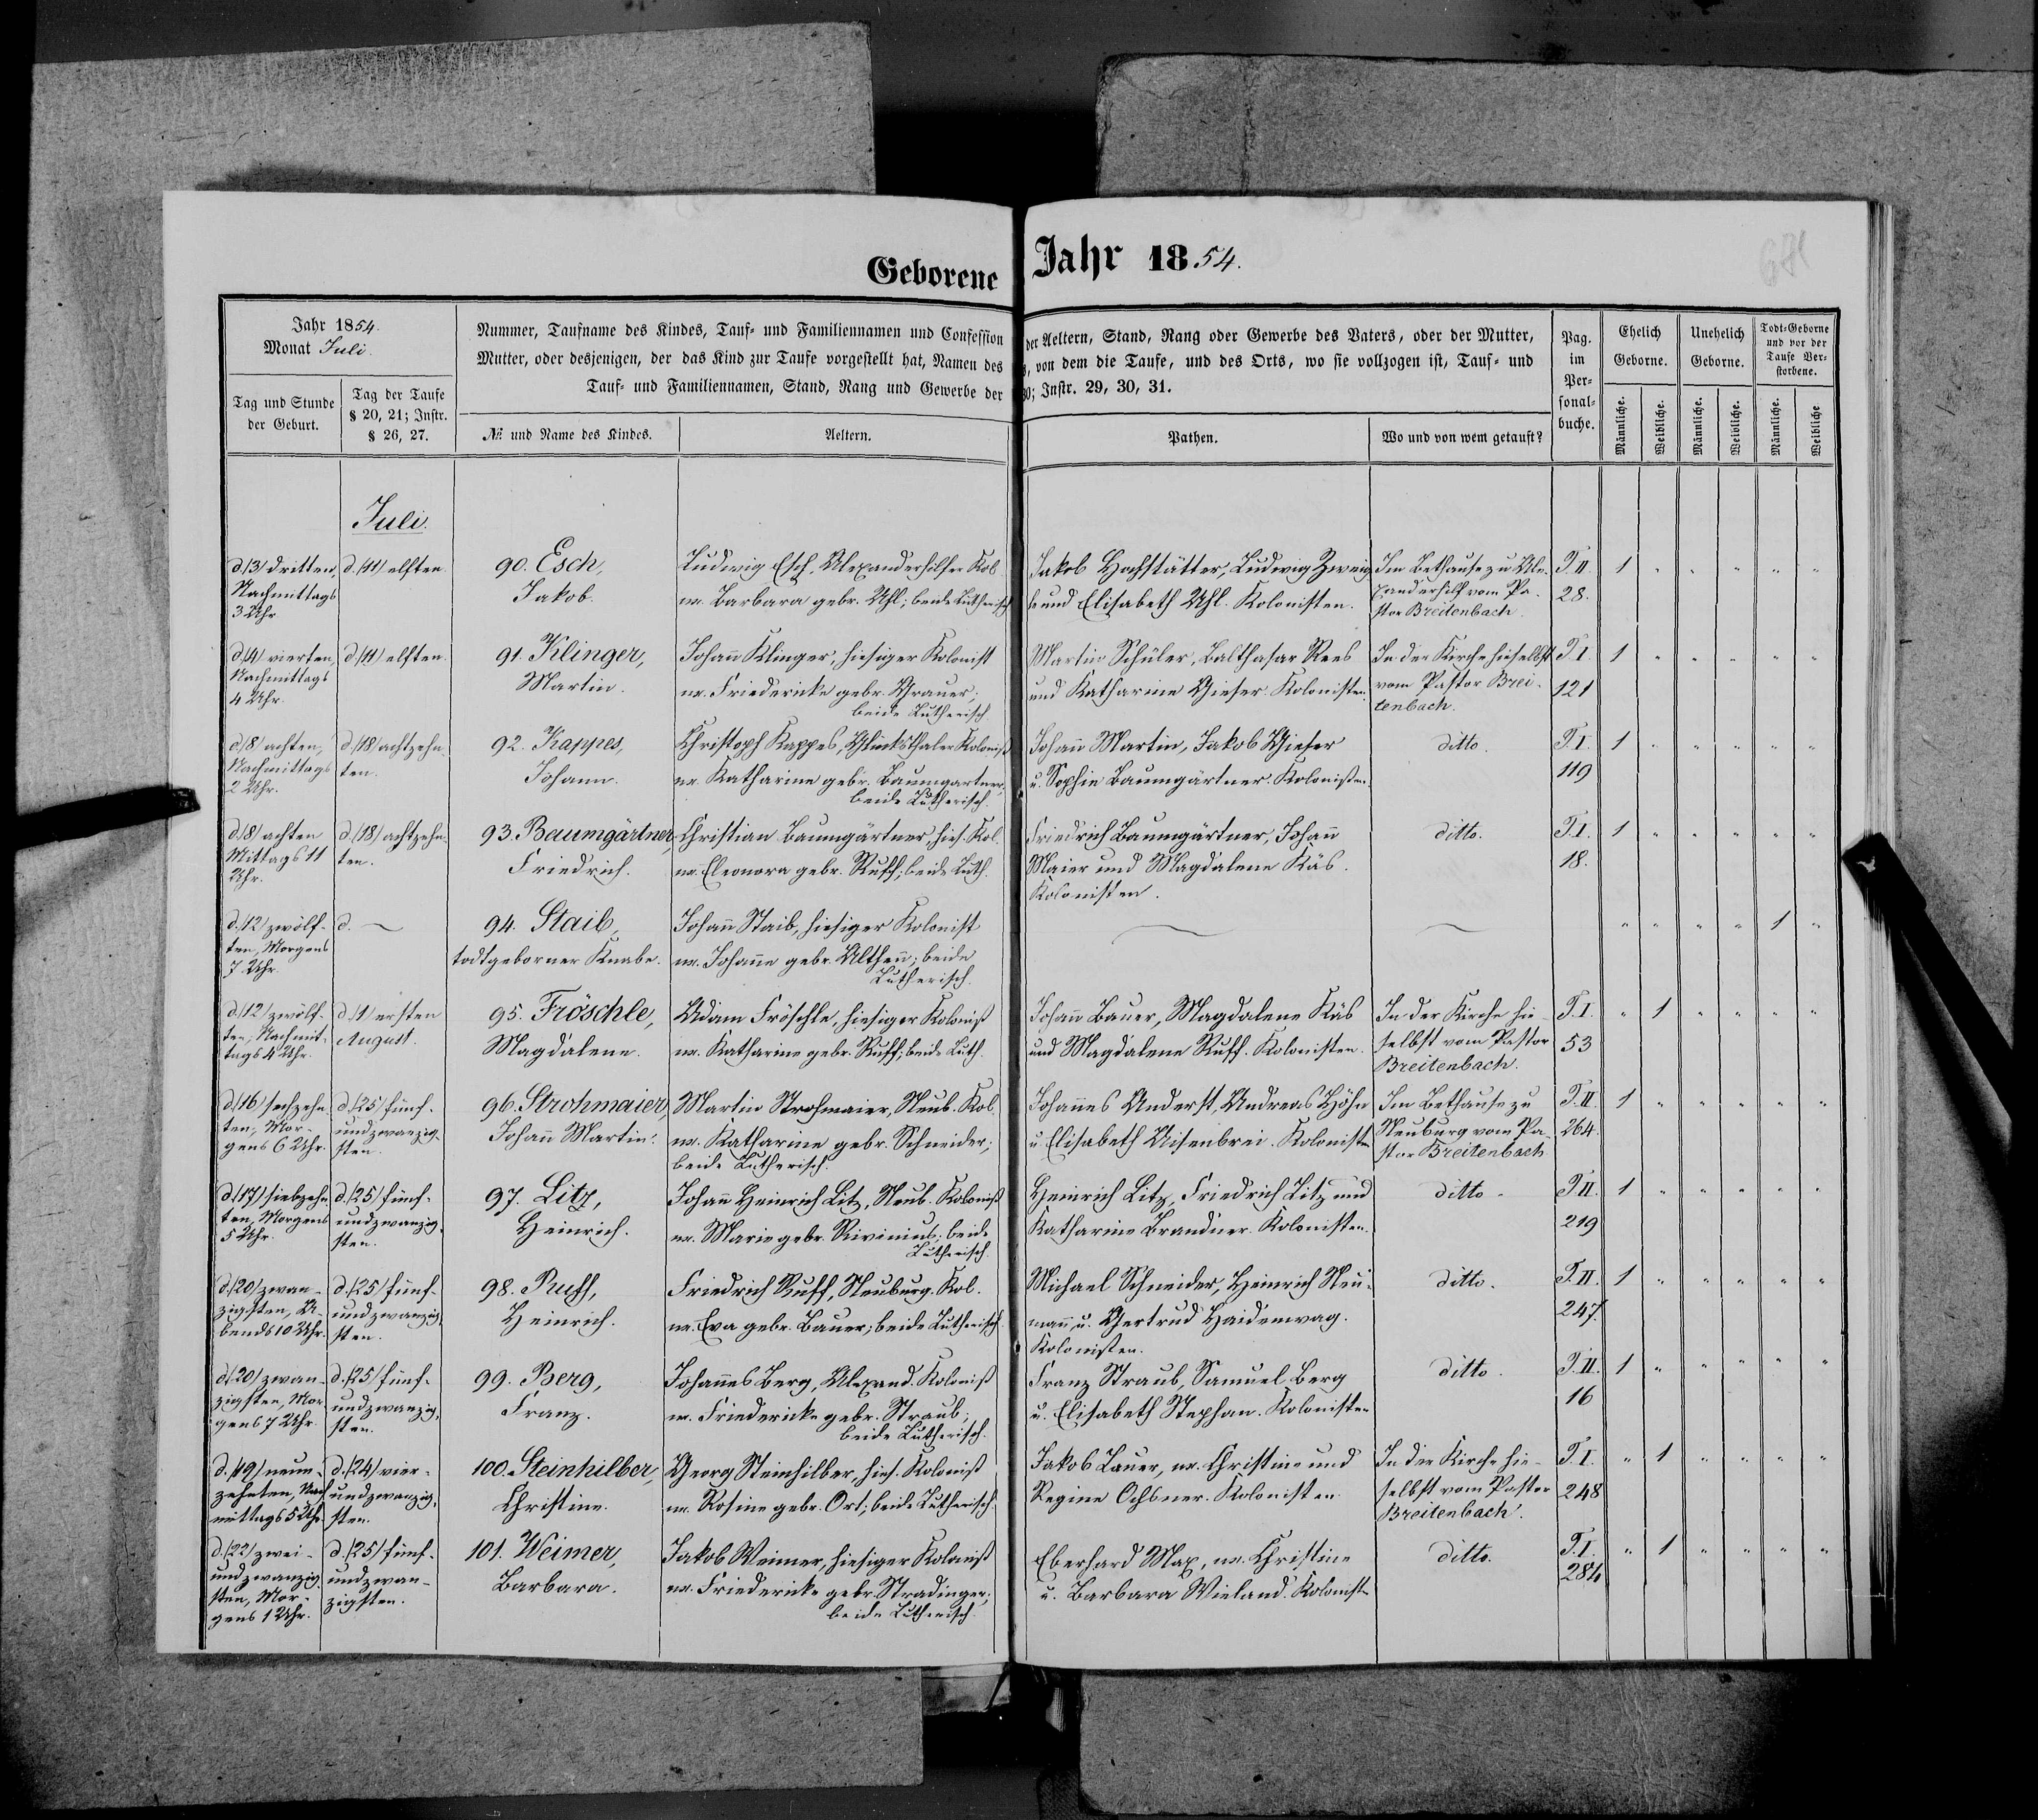 Geborene Jahr 1854.
Jahr 1854.
Monat Juli.
Tag und Stunde
der Geburt.
Tag der Taufe
§ 20, 21; Instr.
§ 26, 27.
Nummer, Taufname des Kindes, Tauf- und Familiennamen und Confession der Aeltern, Stand, Rang oder Gewerbe des Vaters, oder der Mutter,
Mutter, oder desjenigen, der das Kind zur Taufe vorgestellt hat, Namen des von dem die Taufe, und des Orts, wo sie vollzogen ist, Tauf- und
Tauf- und Familiennamen, Stand, Rang und Gewerbe der 30; Instr. 29, 30, 31.
№ und Name des Kindes.
Aeltern.
Pathen.
Wo und von wem getauft?
Pag.
im
Per-
sonal-
buche.
Ehelich
Geborne.
Unehelich
Geborne.
Todt-Geborne
und vor der
Taufe Ver-
storbene.
Männliche.
Weibliche.
Männliche.
Weibliche.
Männliche.
Weibliche
Juli.
d. (3) dritten,
Nachmittags
3 Uhr.
d. (11) elften.
90. Esch,
Jakob.
Ludwig Esch, Alexanderhilfer Kol.
ux. Barbara gebr. Uhl; beide Lutherisch
Jakob Hochstätter, Ludwig Zweig-
le und Elisabeth Uhl. Kolonisten.
Im Bethause zu Ale-
xanderhilf vom Pa-
stor Breitenbach.
T. II
28.
1 " " " " "
d. (4) vierten,
Nachmittags
4 Uhr.
d. (11) elften.
91. Klinger,
Martin.
Johann Klinger, hiesiger Kolonist
ux. Friedericke gebr. Grauer;
beide Lutherisch.
Martin Schüler, Balthasar Rees
und Katharine Gieser. Kolonisten.
In der Kirche hieselbst
vom Pastor Brei-
tenbach.
T. I.
121
1 " " " " "
d. (8) achten,
Nachmittags
2 Uhr.
d. (18) achtzehn-
ten.
92. Kappes,
Johann.
Christoph Kappes, Glücksthaler Kolonist
ux. Katharine gebr. Baumgartner,
beide Lutherisch.
Johann Martin, Jakob Gieser
u. Sophie Baumgärtner. Kolonisten.
ditto.
T. I.
119
1 " " " " "
d. (8) achten
Mittags 11
Uhr.
d. (18) achtzehn-
ten.
93. Baumgärtner,
Friedrich.
Christian Baumgärtner, hies. Kol.
ux. Eleonora gebr. Ruff; beide Luth.
Friedrich Baumgärtner, Johann
Maier und Magdalene Käs.
Kolonisten.
ditto.
T. I.
18.
1 " " " " "
d. (12) zwölf-
ten, Morgens
7 Uhr.
d. —
94. Staib,
todtgeborner Knabe.
Johann Staib, hiesiger Kolonist
ux. Johanne gebr. Althenn; beide
Lutherisch.
" " " " 1 "
d. (12) zwölf-
ten, Nachmit-
tags 4 Uhr.
d. (1) ersten
August.
95. Fröschle,
Magdalene.
Adam Fröschle, hiesiger Kolonist
ux. Katharine gebr. Ruff; beide Luth.
Johann Bauer, Magdalene Käs
und Magdalene Ruff. Kolonisten.
In der Kirche hie-
selbst vom Pastor
Breitenbach.
T. I.
53
" 1 " " " "
d. (16) sechzehn-
ten, Mor-
gens 6 Uhr.
d. (25) fünf-
undzwanzig-
sten.
96. Strohmaier,
Johann Martin.
Martin Strohmaier, Neub. Kol.
ux. Katharine gebr. Schneider;
beide Lutherisch.
Johannes Anderst, Andreas Höhn
u. Elisabeth Aisenbrei. Kolonisten
Im Bethause zu
Neuburg vom Pa-
stor Breitenbach
T. II.
264.
1 " " " " "
d. (17) siebzehn-
ten, Morgens
5 Uhr.
d. (25) fünf-
undzwanzig-
sten.
97. Litz,
Heinrich.
Johann Heinrich Litz, Neub. Kolonist
ux. Marie gebr. Rivinius; beide
Lutherisch.
Heinrich Litz, Friedrich Litz und
Katharine Brandner. Kolonisten.
ditto.
T. II.
219
1 " " " " "
d. (20) zwan-
zigsten, A-
bends 10 Uhr.
d. (25) fünf-
undzwanzig-
sten.
98. Ruff,
Heinrich.
Friedrich Ruff, Neuburg. Kol.
ux. Eva gebr. Bauer; beide Lutherisch.
Michael Schneider, Heinrich Neu-
mann, u. Gertrud Haidenwag.
Kolonisten.
ditto.
T. II.
247.
1 " " " " "
d. (20) zwan-
zigsten, Mor-
gens 7 Uhr.
d. (25) fünf-
undzwanzig-
sten.
99. Berg,
Franz.
Johannes Berg, Alexand. Kolonist
ux. Friedericke gebr. Straub;
beide Lutherisch.
Franz Straub, Samuel Berg
u. Elisabeth Stephan. Kolonisten
ditto.
T. II.
16
1 " " " " "
d. (19) neun-
zehnten, Nach-
mittags 5 Uhr.
d. (24) vier-
undzwanzig-
sten.
100. Steinhilber,
Christine.
Georg Steinhilber, hies. Kolonist
ux. Rosine gebr. Ort; beide Lutherisch.
Jakob Lauer, ux. Christine und
Regine Ochsner. Kolonisten.
In der Kirche hie-
selbst vom Pastor
Breitenbach.
T. I.
248
" 1 " " " "
d. (22) zwei-
undzwanzig-
sten, Mor-
gens 1 Uhr.
d. (25) fünf-
undzwan-
zigsten.
101. Weimer,
Barbara.
Jakob Weimer, hiesiger Kolonist
ux. Friedericke gebr. Stradinger;
beide Lutherisch.
Eberhard Max, ux. Christine
u. Barbara Wieland. Kolonist
ditto.
T. I.
284
" 1 " " " "